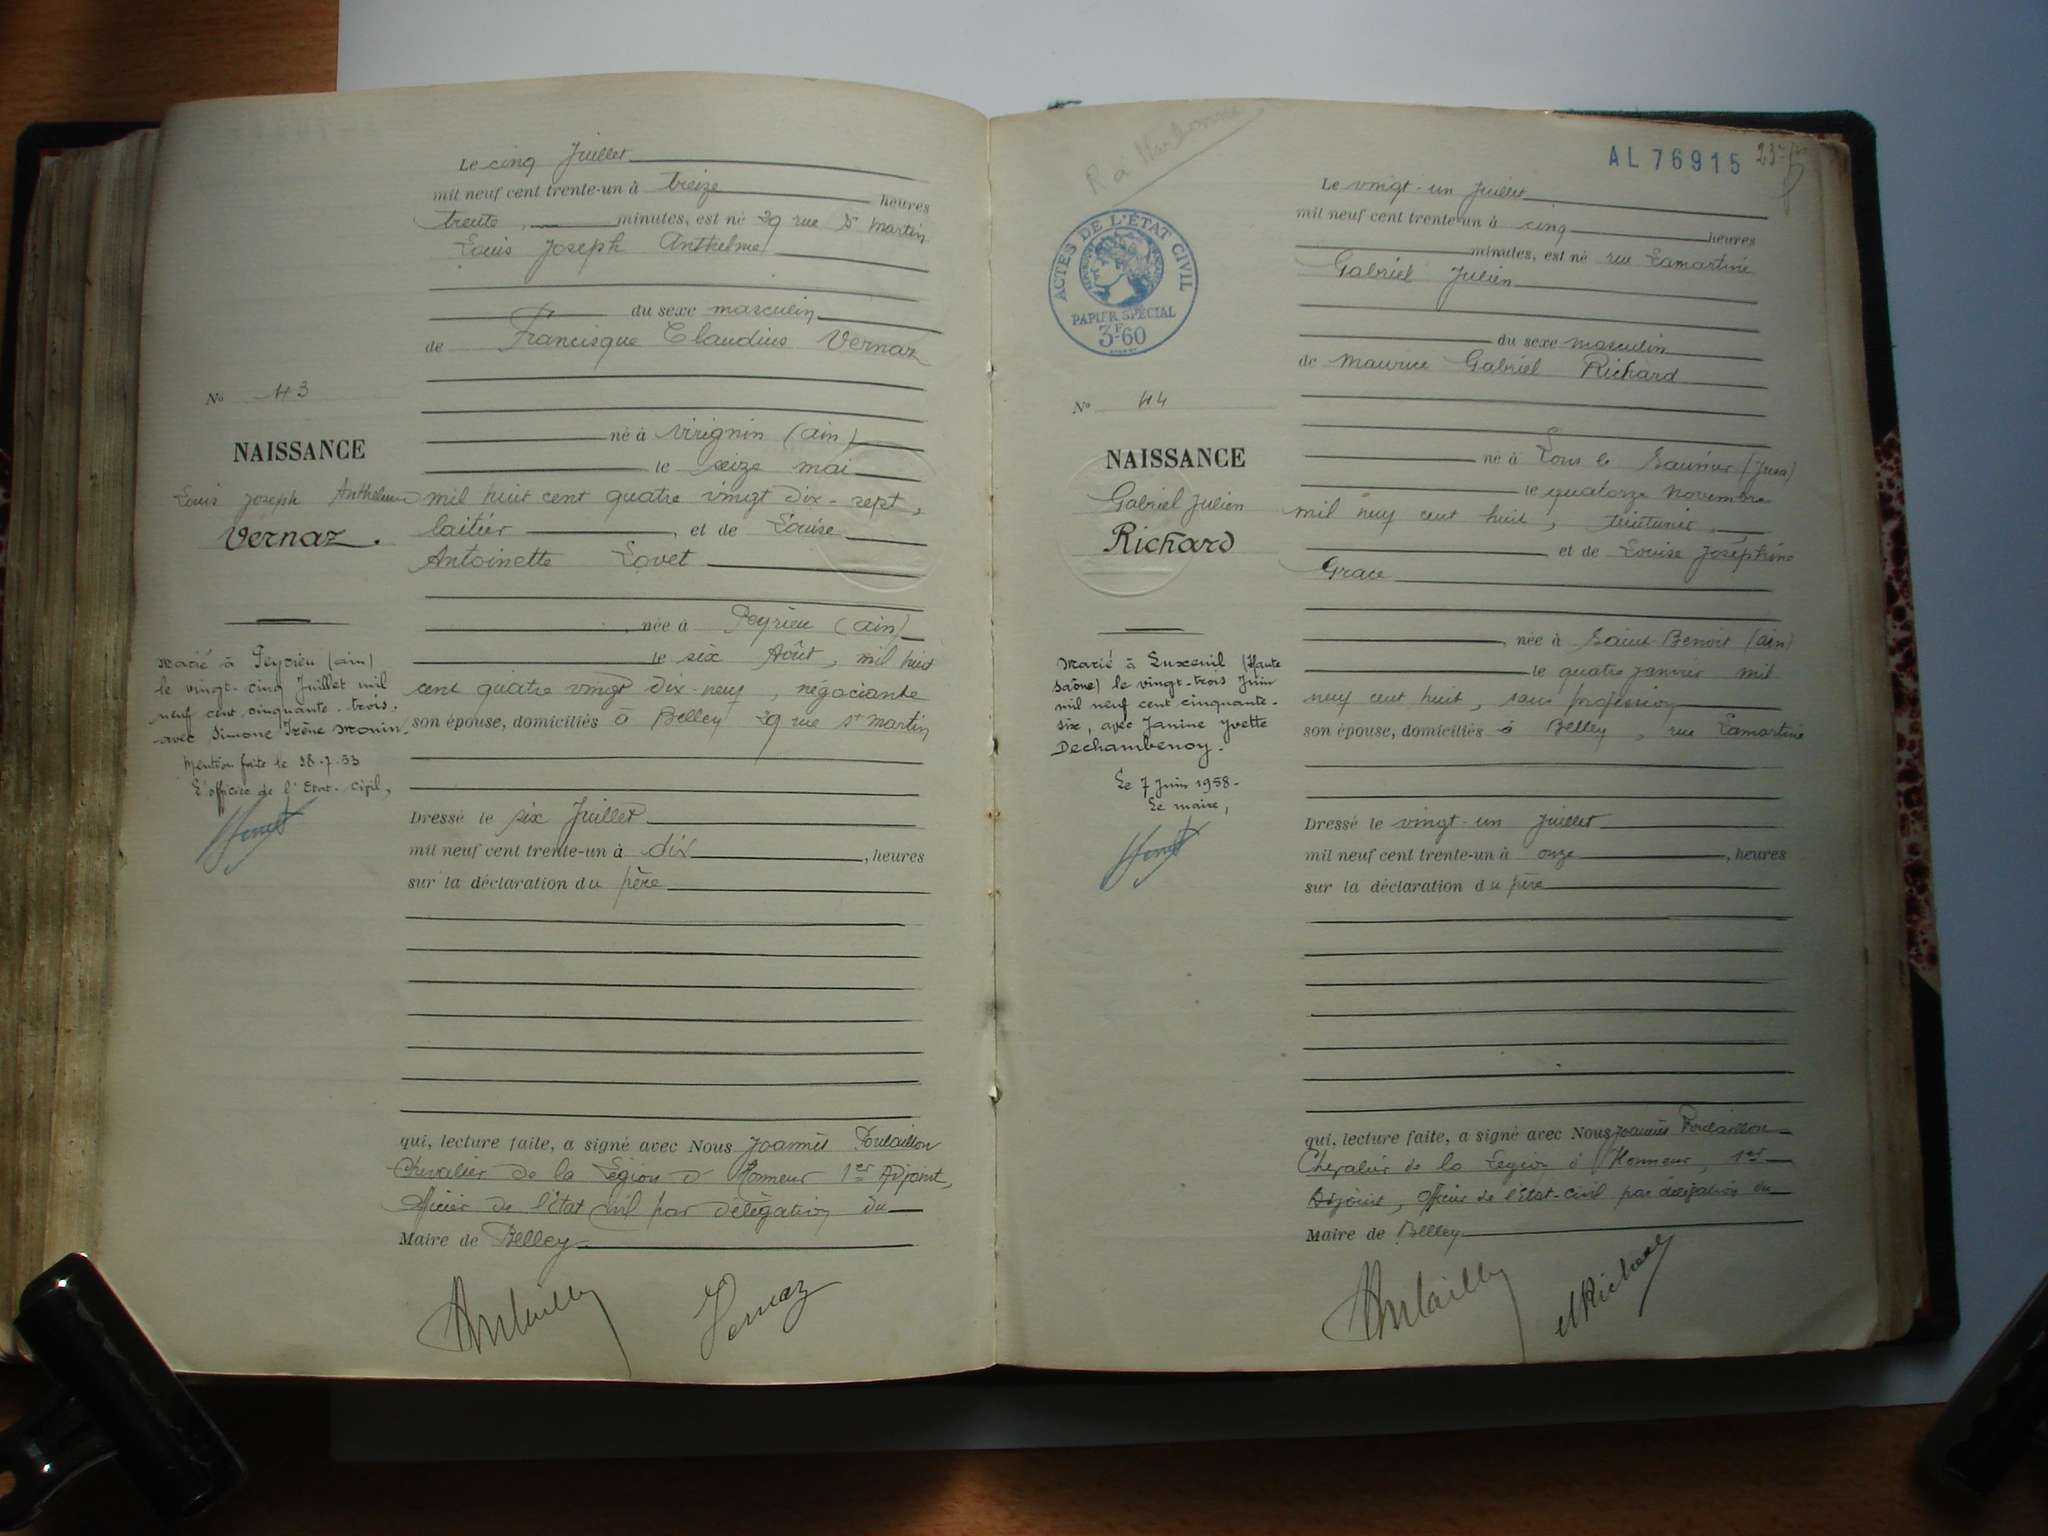 Le cinq Juillet
mil neuf cent trente-un à treize heures
trente, minutes, est né 29 rue St Martin
Louis Joseph Anthelme
du sexe masculin
de Francisque Claudius Vernaz
No 43
né à Virignin (Ain)
NAISSANCE
le seize mai
Louis Joseph Anthelme
mil huit cent quatre vingt dix-sept,
Vernaz.
laitier, et de Louise
Antoinette Lovet
née à Peyrieu (Ain)
le six Août, mil huit
cent quatre vingt dix-neuf, négociante
son épouse, domiciliés à Belley 29 rue St Martin
Marié à Peyrieu (Ain)
le vingt-cinq Juillet mil
neuf cent cinquante-trois,
avec Simone Irène Monin.
Mention faite le 28.7.53
L'officier de l'Etat-civil,
Dressé le six Juillet
mil neuf cent trente-un à dix, heures
sur la déclaration du père
qui, lecture faite, a signé avec Nous Joannès Poulaillon
Chevalier de la Légion d'Honneur 1er Adjoint,
officier de l'Etat civil par délégation du
Maire de Belley
Vernaz
R à Narbonne
AL 76915
ACTES DE L'ÉTAT CIVIL
PAPIER SPÉCIAL
3F60
Le vingt-un Juillet
mil neuf cent trente-un à cinq heures
minutes, est né rue Lamartine
Gabriel Julien
du sexe masculin
de Maurice Gabriel Richard
No 44
né à Lons le Saunier (Jura)
NAISSANCE
le quatorze Novembre
Gabriel Julien
mil neuf cent huit, teinturier
Richard
et de Louise Joséphine
Grace
née à Saint-Benoit (Ain)
le quatre janvier mil
neuf cent huit, sans profession
son épouse, domiciliés à Belley, rue Lamartine
Marié à Luxeuil (Haute
Saône) le vingt-trois Juin
mil neuf cent cinquante-
six, avec Janine Yvette
Dechambenoy.
Le 7 Juin 1958-
Le maire,
Dressé le vingt-un Juillet
mil neuf cent trente-un à onze, heures
sur la déclaration du père
qui, lecture faite, a signé avec Nous Joannès Poulaillon
Chevalier de la Légion d'Honneur, 1er
Adjoint, officier de l'état-civil par délégation du
Maire de Belley
MRichard